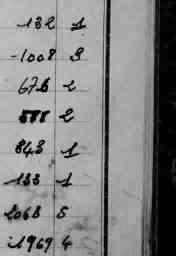 132 1
-1008 3
676 2
588 2
843 1
133 1
2068 5
1969 4